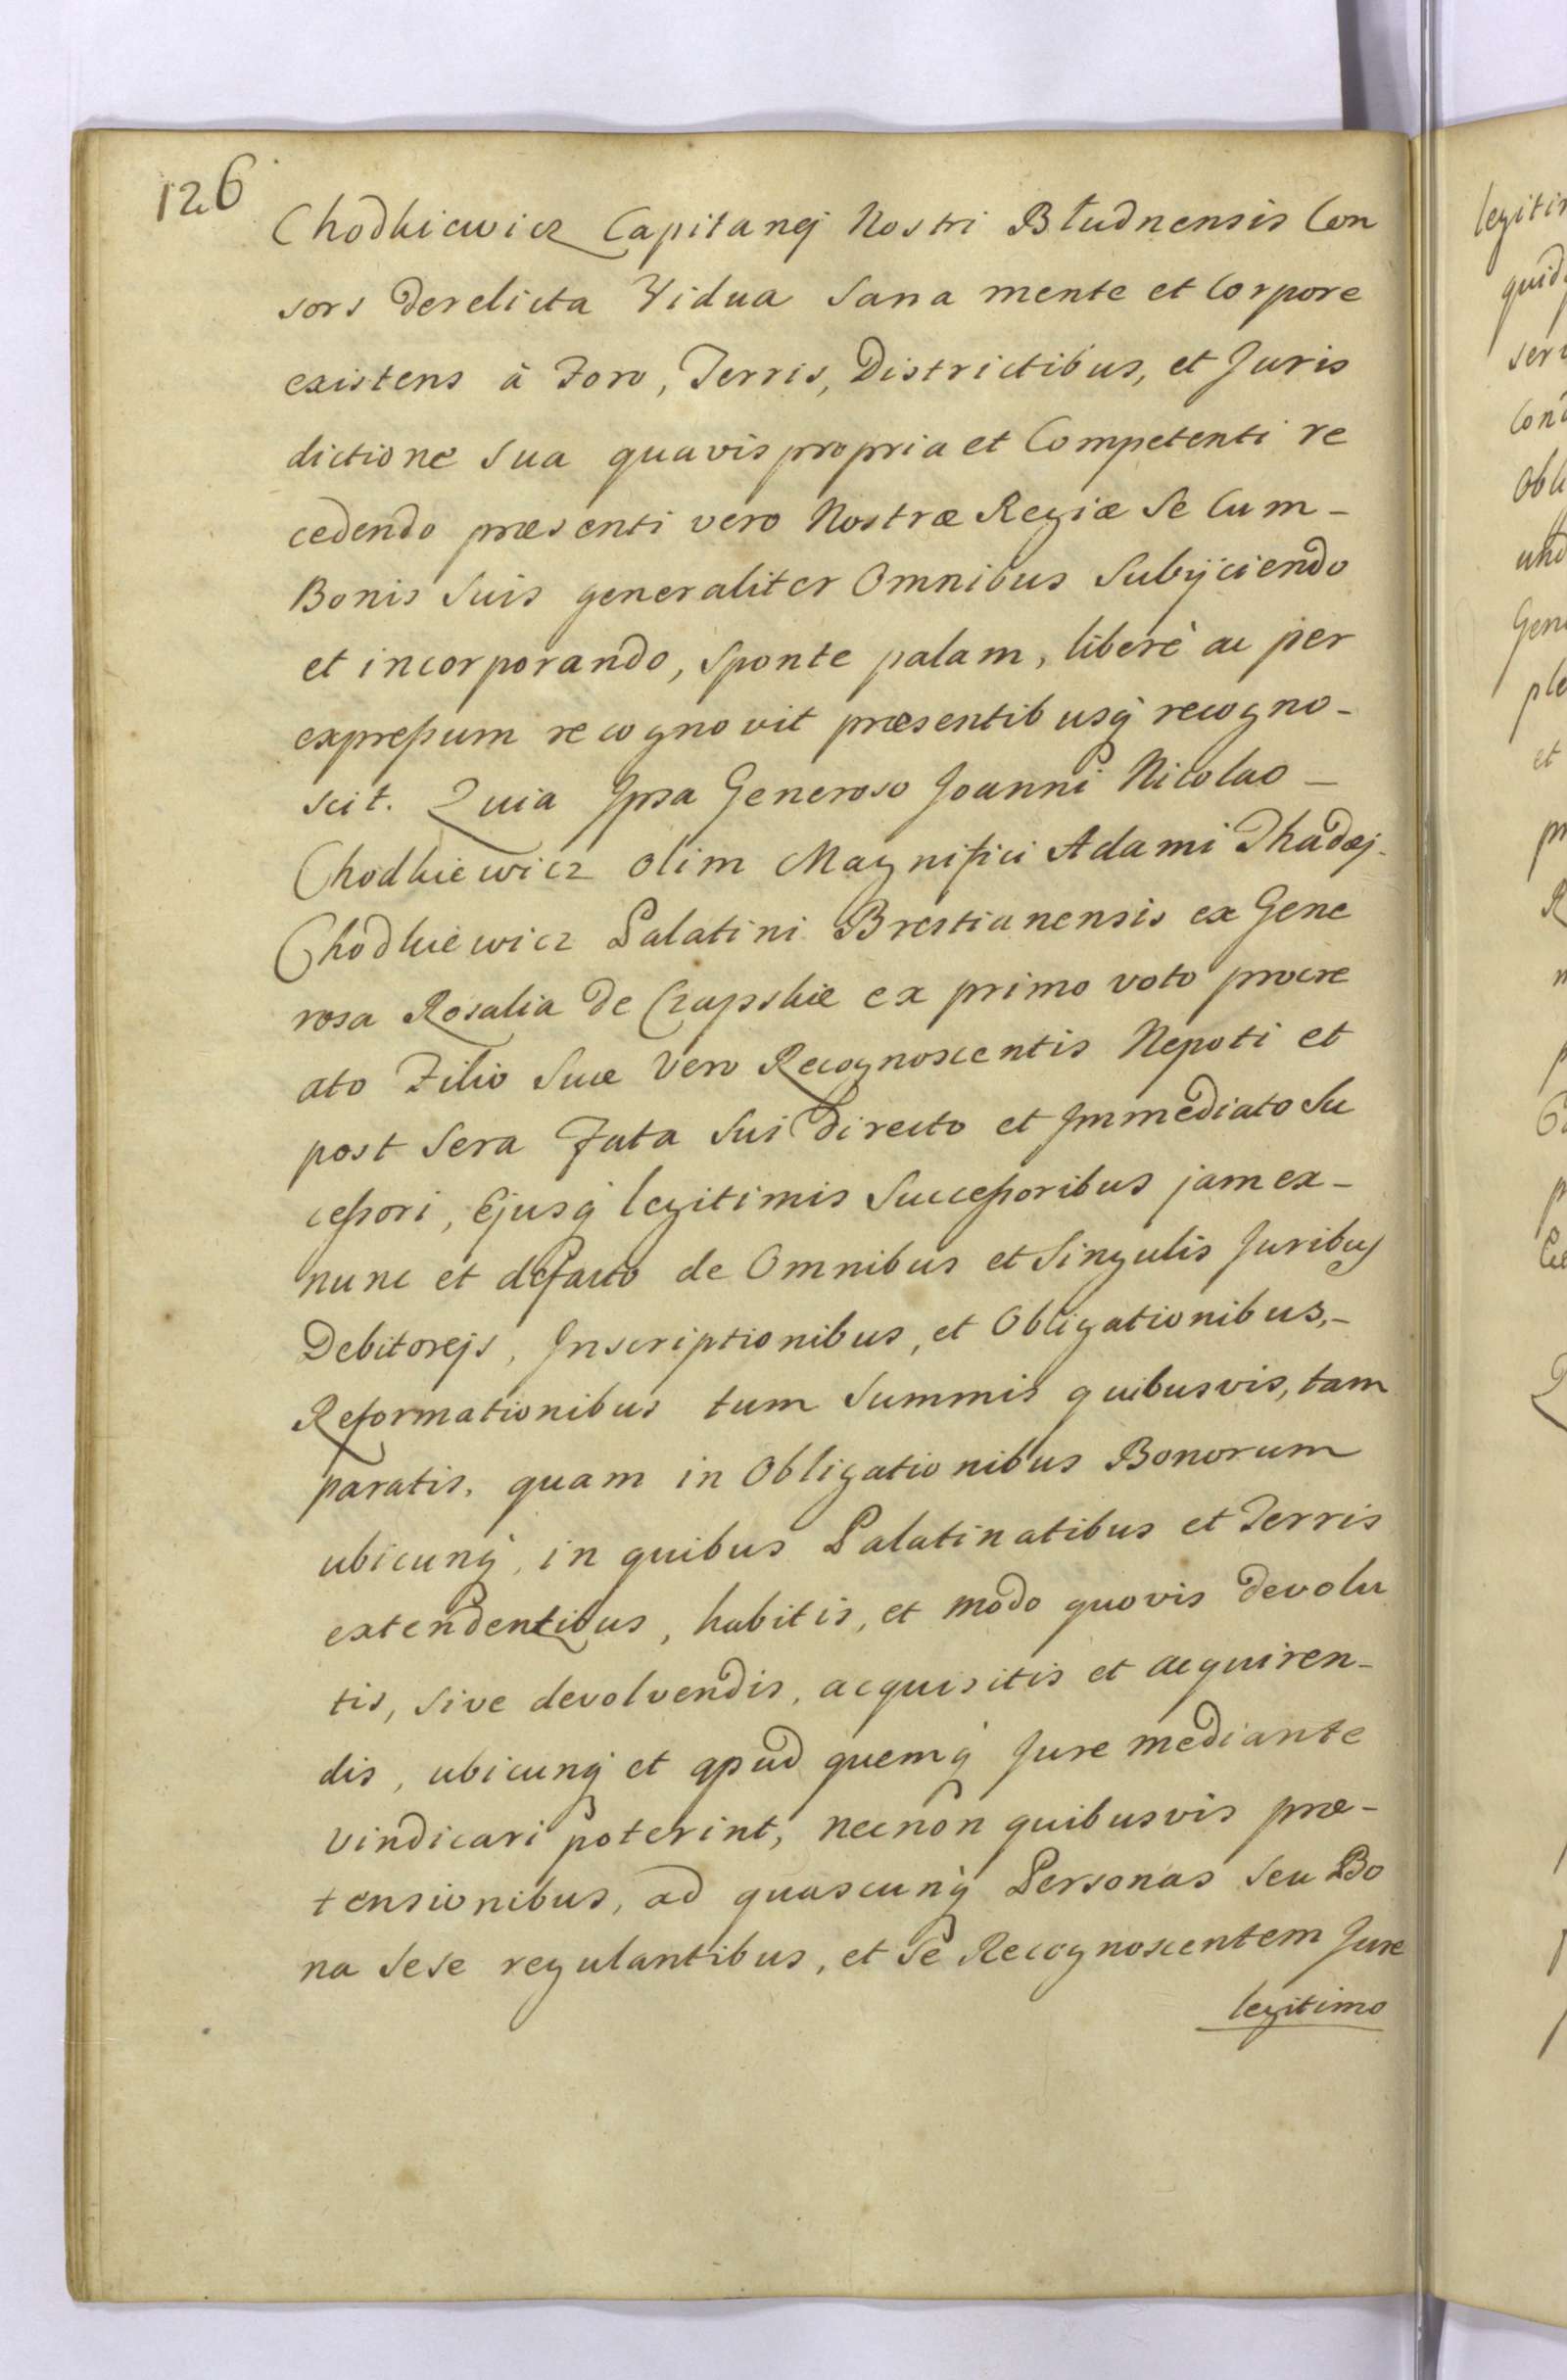 126
Chodkiewicz Capitanej Nostri Błudnensis Con
sors Derelicta Vidua Sana mente et Corpore
existens à Foro, Terris, Districtibus, et Juris
dictione Sua quavis propria et Competenti re
cedendo præsenti vero Nostræ Regiæ Se Cum-
Bonis Suis generaliter Omnibus Subÿciendo
et incorporando, Sponte palam, liberè ac per
expreſsum recognovit præsentibusq́ recogno-
scit. Quia Ipsa Generoso Joanni Nicolao -
Chodkiewicz olim Magnifici Adami Thadæj-
Chodkiewicz Palatini Brestianensis ex Gene
rosa Rosalia de Czapskie ex primo voto procre
ato Filio Suæ Vero Recognoscentis Nepoti et
post Sera Fata Sui Directo et Immediato Su
cceſsori, Ejusq́ legitimis Succeſsoribus jam ex-
nunc et defacto de Omnibus et Singulis Juribus
Debitorejs, Inscriptionibus, et Obligationibus,-
Reformationibus tum Summis quibusvis, tam
paratis, quam in Obligationibus Bonorum
ubicunq́, in quibus Palatinatibus et Terris
extendentibus, habitis, et modo quovis Devolu
tis, Sive devolvendis, acquisitis et acquiren-
dis, ubicunq́ et apud quemq́ Jure mediante
Vindicari poterint, necnon quibusvis præ-
tensionibus, ad quascunq́ Personas Seu Bo
na Sese regulantibus, et Se Recognoscentem Jure
legitimo